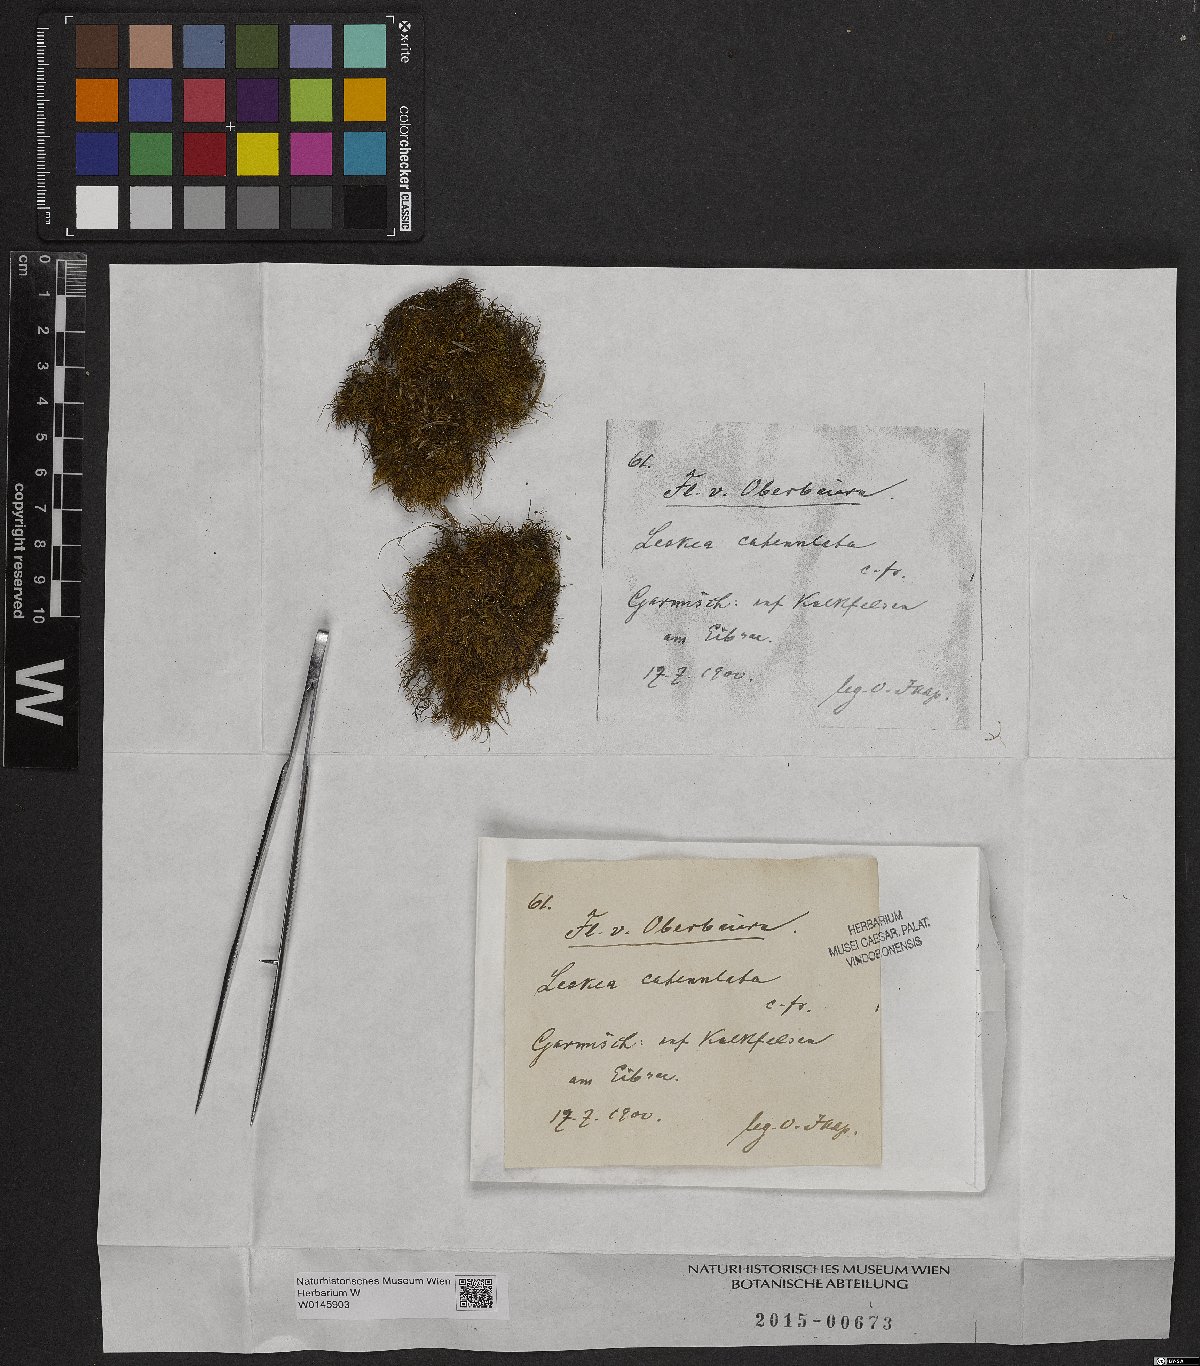 x-rite
colorchecker CLASSIC
mm
0 1 2 3 4 5 6 7 8 9 10
cm
copyright reserved
W
61.
Fl. v. Oberbaiern.
Leskea catenulata
c. fr.
Garmisch: auf Kalkfelsen
am Eibsee.
17.7.1900.
leg. O. Jaap.
61.
Fl. v. Oberbaiern.
Leskea catenulata
c. fr.
Garmisch: auf Kalkfelsen
am Eibsee.
17.7.1900.
leg. O. Jaap.
HERBARIUM
MUSEI CAESAR. PALAT.
VINDOBONENSIS
Naturhistorisches Museum Wien
Herbarium W
W0145903
NATURHISTORISCHES MUSEUM WIEN
BOTANISCHE ABTEILUNG
2015-00673